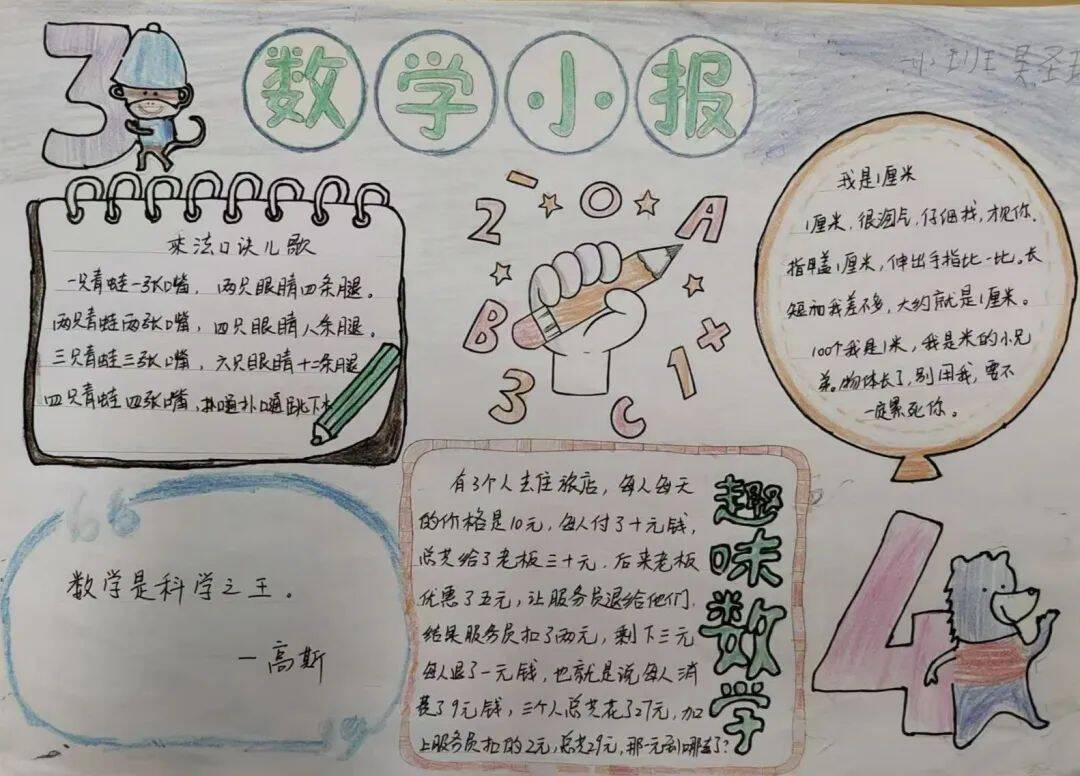 3
数学小报
小班 吴圣
乘法口诀儿歌
一只青蛙一张嘴，两只眼睛四条腿。
两只青蛙两张嘴，四只眼睛八条腿。
三只青蛙三张嘴，六只眼睛十二条腿
四只青蛙四张嘴，扑通扑通跳下水
2 - O A
B 3 C 1 +
我是1厘米
1厘米，很淘气，仔细找，才见你。
指甲盖1厘米，伸出手指比一比。长
短和我差不多，大约就是1厘米。
100个我是1米，我是米的小兄
弟。物体长了，别用我，要不
一定累死你。
数学是科学之王。
一高斯
有3个人去住旅店，每人每天
的价格是10元，每人付了十元钱，
总共给了老板三十元，后来老板
优惠了五元，让服务员退给他们，
结果服务员扣了两元，剩下三元
每人退了一元钱，也就是说每人消
费了9元钱，三个人总共花了27元，加
上服务员扣的2元，总共29元，那一元到哪去了？
趣味数学
4